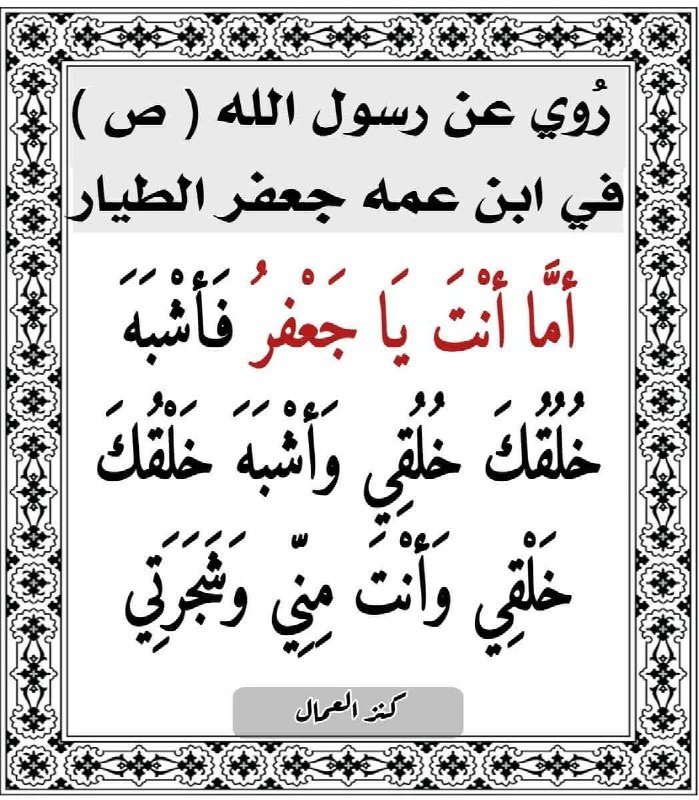 رُوي عن رسول الله ( ص )
في ابن عمه جعفر الطيار
أمَّا أنْتَ يَا جَعْفرُ فَأشْبَهَ
خُلُقُكَ خُلُقِي وَأشْبَهَ خَلْقُكَ
خَلْقِي وَأنْتَ مِنِّي وَشَجَرَتِي
كنز العمال